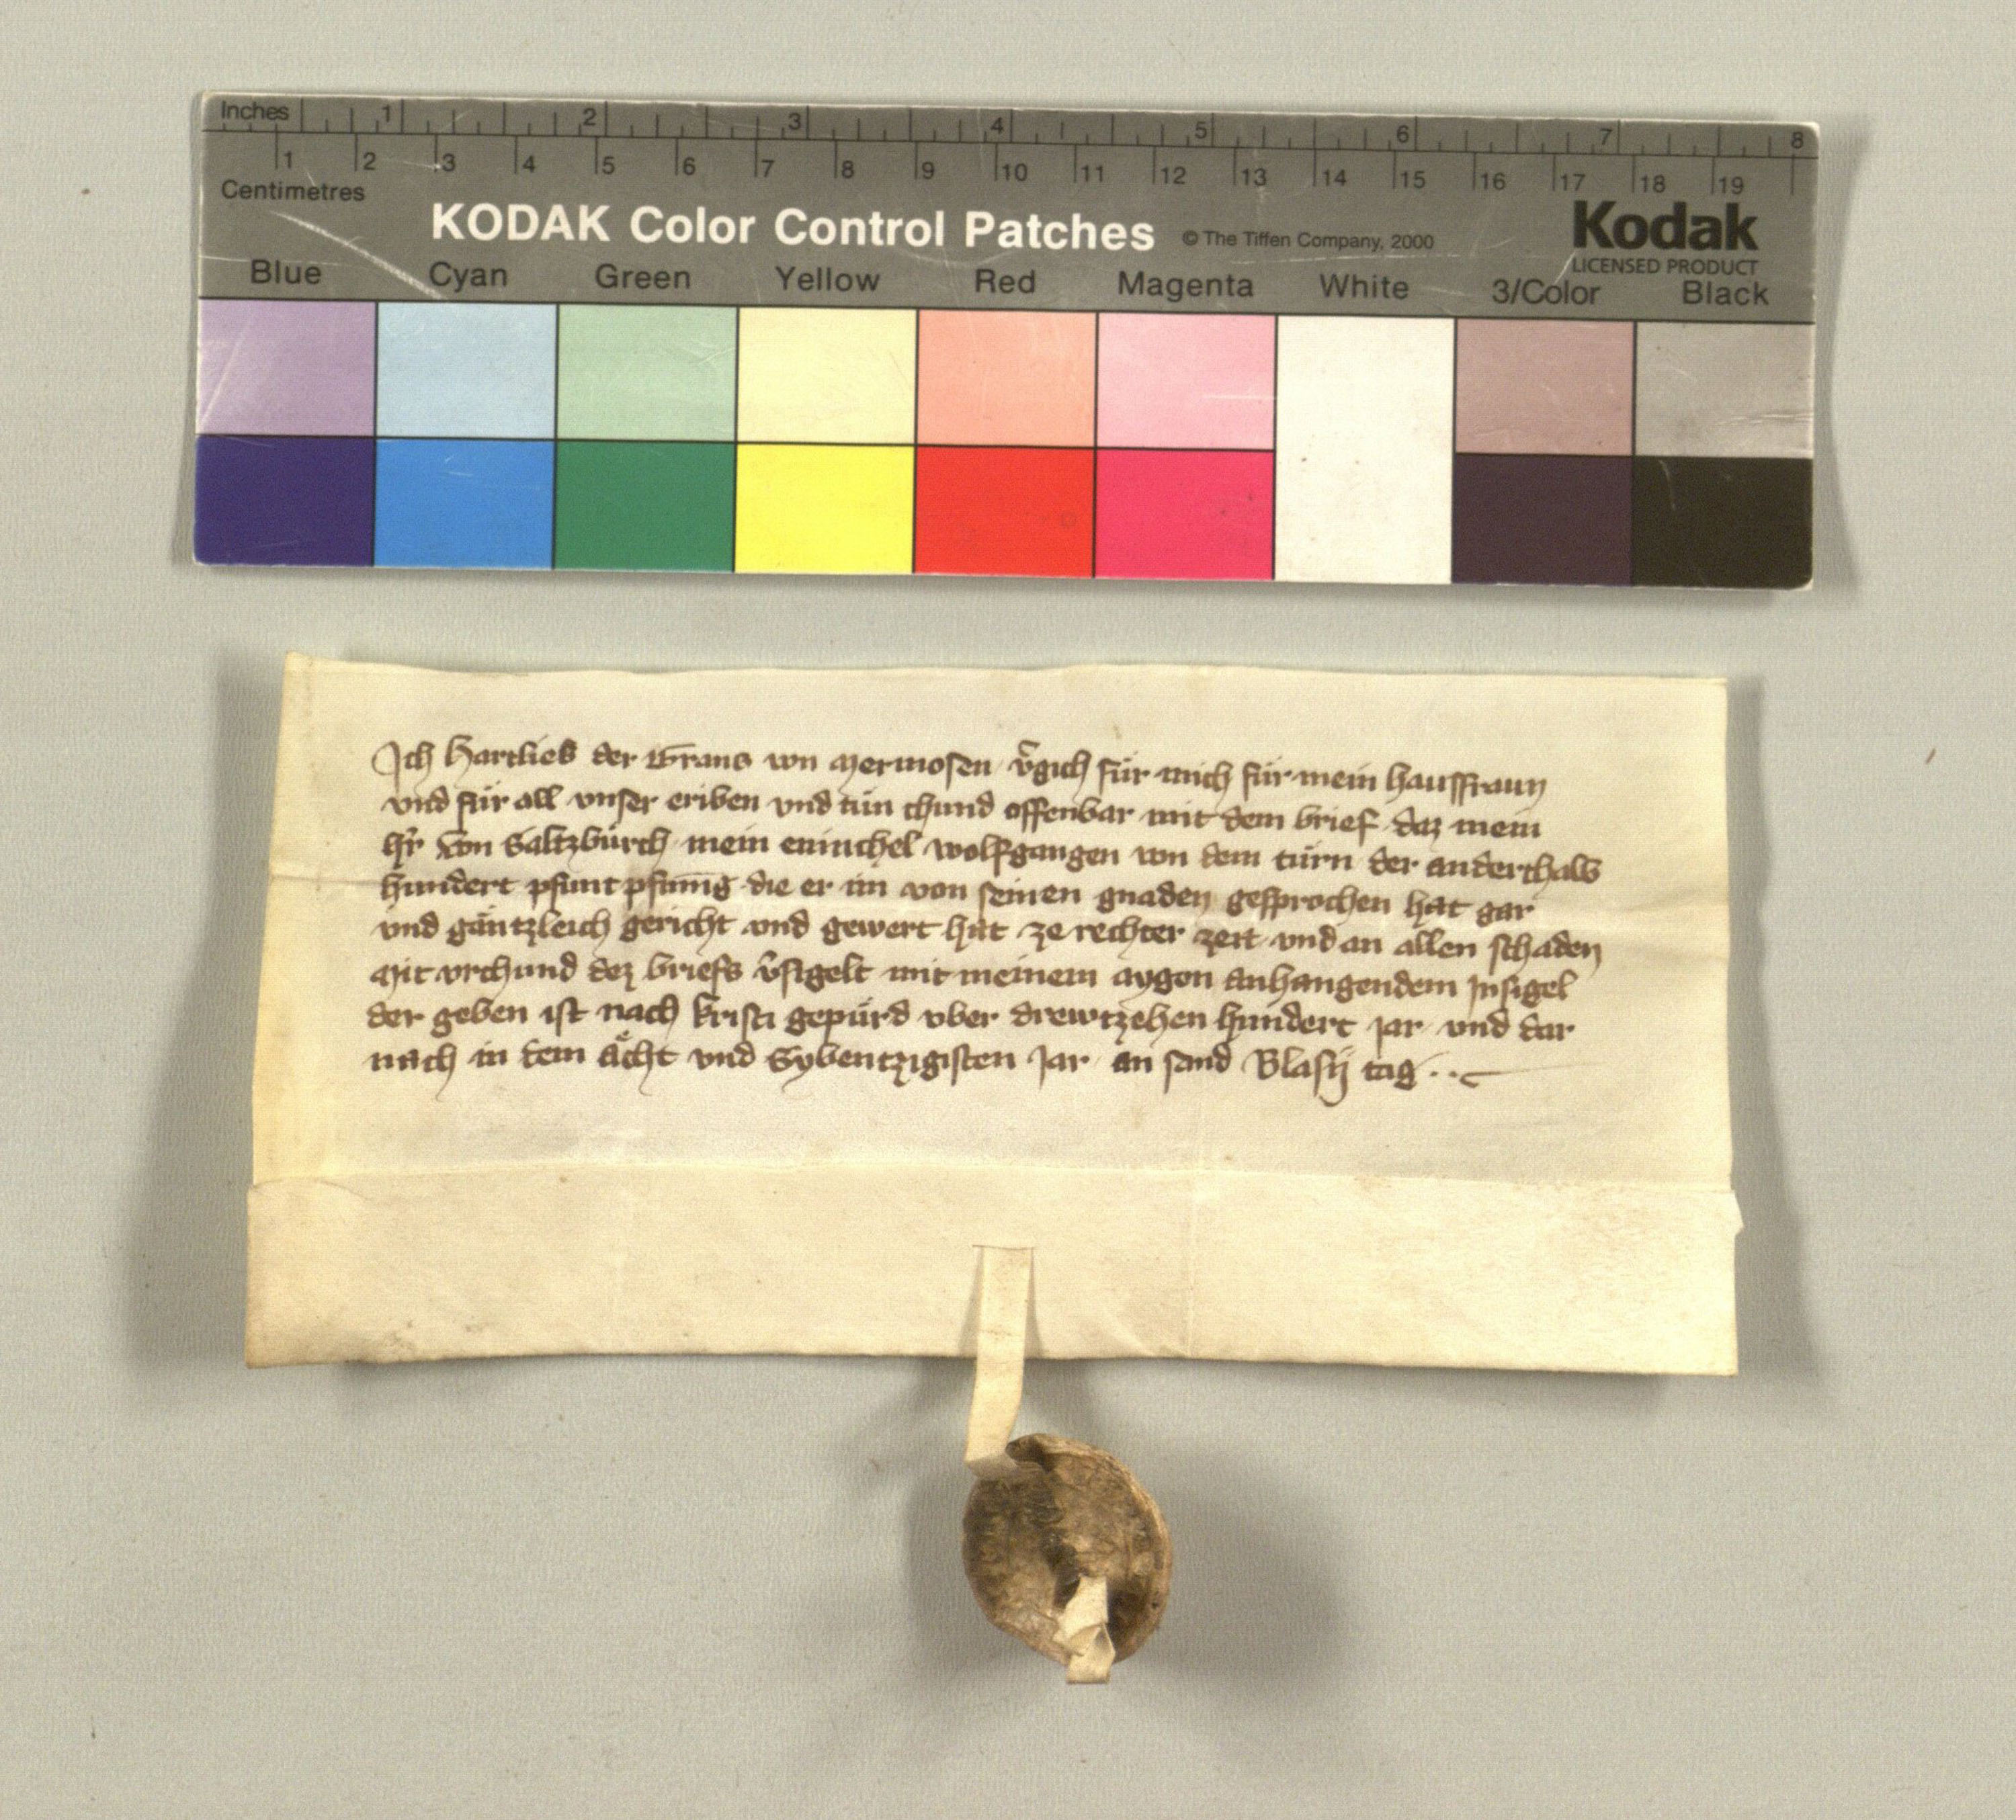 Inches 1 2 3 4 5 6 7 8
1 2 3 4 5 6 7 8 9 10 11 12 13 14 15 16 17 18 19
Centimetres
KODAK Color Control Patches © The Tiffen Company, 2000 Kodak
LICENSED PRODUCT
Blue Cyan Green Yellow Red Magenta White 3/Color Black
Ich Hartlieb der Grans von Mermosen v̄gich für mich für mein hausfraun
vnd für all vnser eriben vnd tün chund offenbar mit dem brief daz mein
h̄r von Saltzbürch mein eninchel wolfgangen von dem türn der anderthalb
hundert pfunt pfennīg die er im von seinen gnaden gesprochen hat gar
vnd gäntzleich gericht vnd gewert hat ze rechter zeit vnd an allen schaden
Mit vrchund dez briefs v̄sigelt mit meinem aygen anhangendem Insigel
der geben ist nach kristi gepürd vber drewtzehen hundert jar vnd dar
nach in dem ächt vnd Sybentzigisten Jar an sand Blasij tag